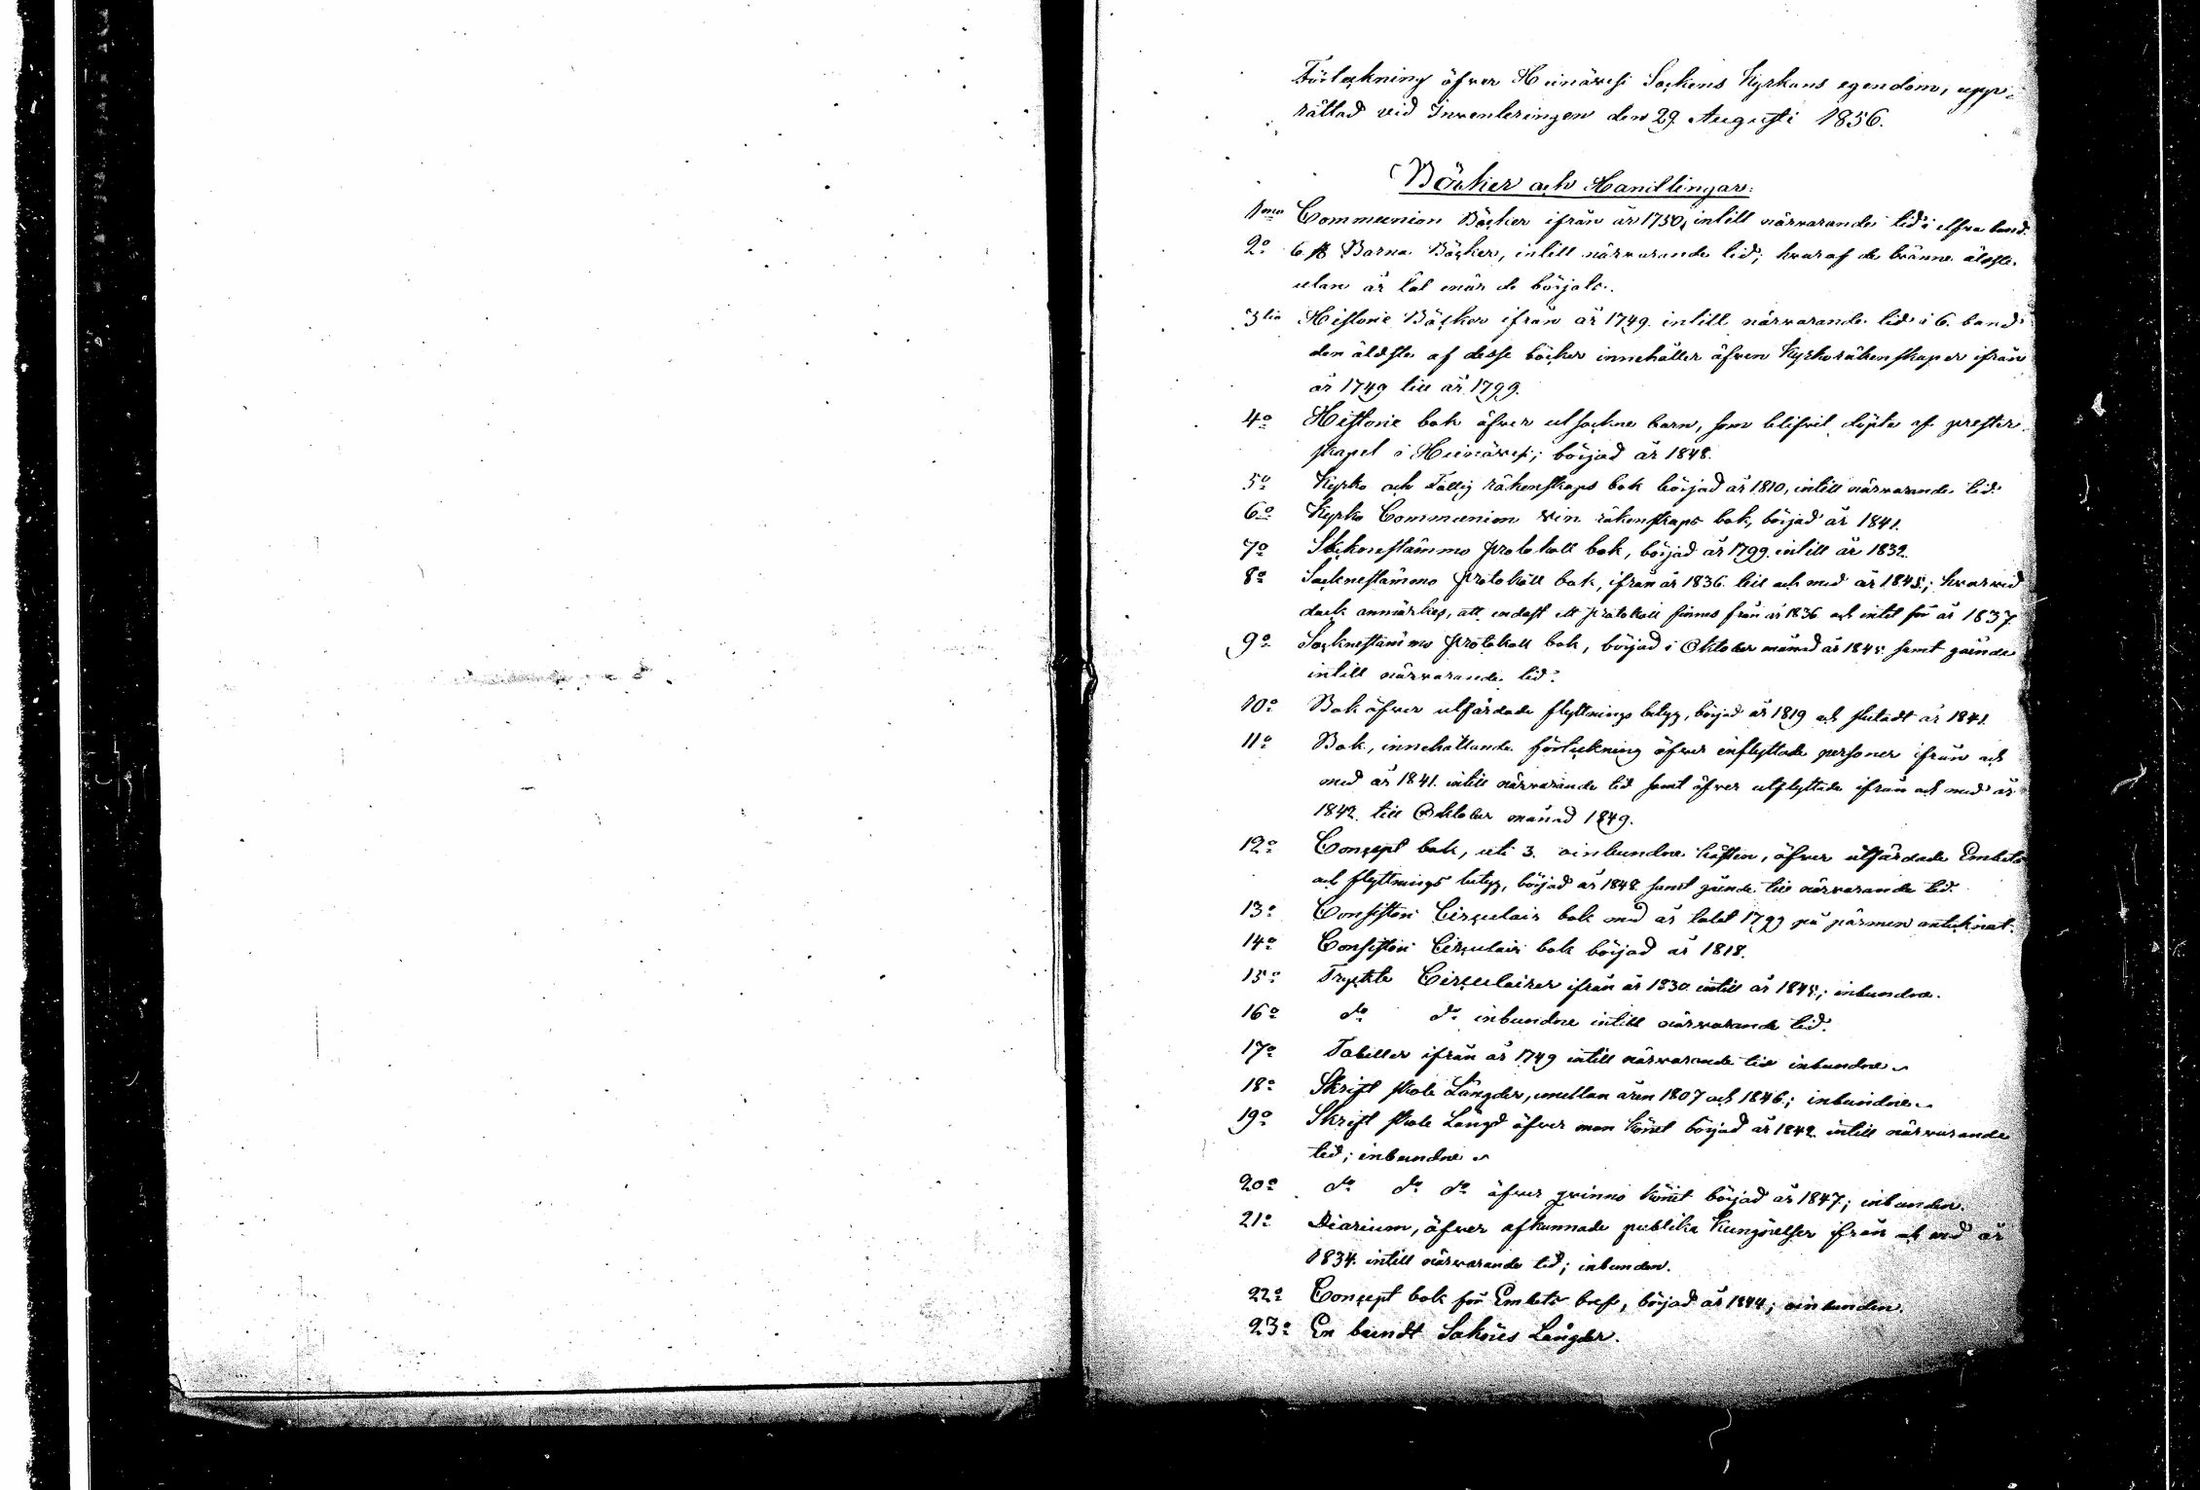 Förteckning öfver Heinävesi Sockens Kyrkans egendom, upp-
rättad vid Inventeringen den 29 Augusti 1856.
Böcker och Handlingar:
1mo Communion Böcker ifrån år 1750, intill närvarande tid i elfva band.
2o 6 st Barna Böcker, intill närvarande tid; hvaraf de tvänne äldste
utan år tal när de börjats.
3tio Historie Böcker ifrån år 1749 intill närvarande tid i 6. band
den äldste af desse böcker innehåller äfven Kyrkoräkenskaper ifrån
år 1749 till år 1799.
4o Historie bok öfver utsockne barn, som blifvit döpte af prester
skapet i Heinävesi; börjad år 1848.
5o Kyrko och Fattig räkenskaps bok börjad år 1810, intill närvarande tid.
6o Kyrko Communion vin räkenskaps bok, börjad år 1841.
7o Sockenstämmo protokoll bok, börjad år 1799 intill år 1832.
8o Socknestämmo protokoll bok, ifrån år 1836 till och med år 1845; hvarvid
dock anmärkes, att endast ett protokoll finnes från år 1836 och intet för år 1837
9o Socknestämmo protokoll bok, börjad i Oktober månad år 1845 samt gående
intill närvarande tid.
10o Bok öfver utfärdade flyttnings betyg, börjad år 1819 och slutadt år 1841
11o Bok, innehållande förteckning öfver inflyttade personer ifrån och
med år 1841. intill närvarande tid samt öfver utflyttade ifrån och med år
1842 till Oktober månad 1849.
12o Concept bok, uti 3. oinbundne häften, öfver utfärdade Embets
och flyttnings betyg, börjad år 1848 samt gående till närvarande tid.
13o Consistorii Circulair bok med år talet 1799 på pärmen antecknat.
14o Consistorii Circulair bok börjad år 1818.
15o Tryckte Circulairer ifrån år 1830 intill år 1845; inbundne.
16o do do inbundne intill närvarande tid.
17o Tabeller ifrån år 1749 intill närvarande tid inbundne
18o Skrift skole Längder, mellan åren 1807 och 1846; inbundne
19o Skrift skole Längd öfver man könet börjad år 1842 intill närvarande
tid; inbundne
20o do do do öfver qvinno könet börjad år 1847; inbunden.
21o Diarium, öfver afkunnade publika Kungörelser ifrån och med år
1834. intill närvarande tid; inbunden.
22o Concept bok för Embets bref, börjad år 1844; oinbunden.
23o En bundt Längder.